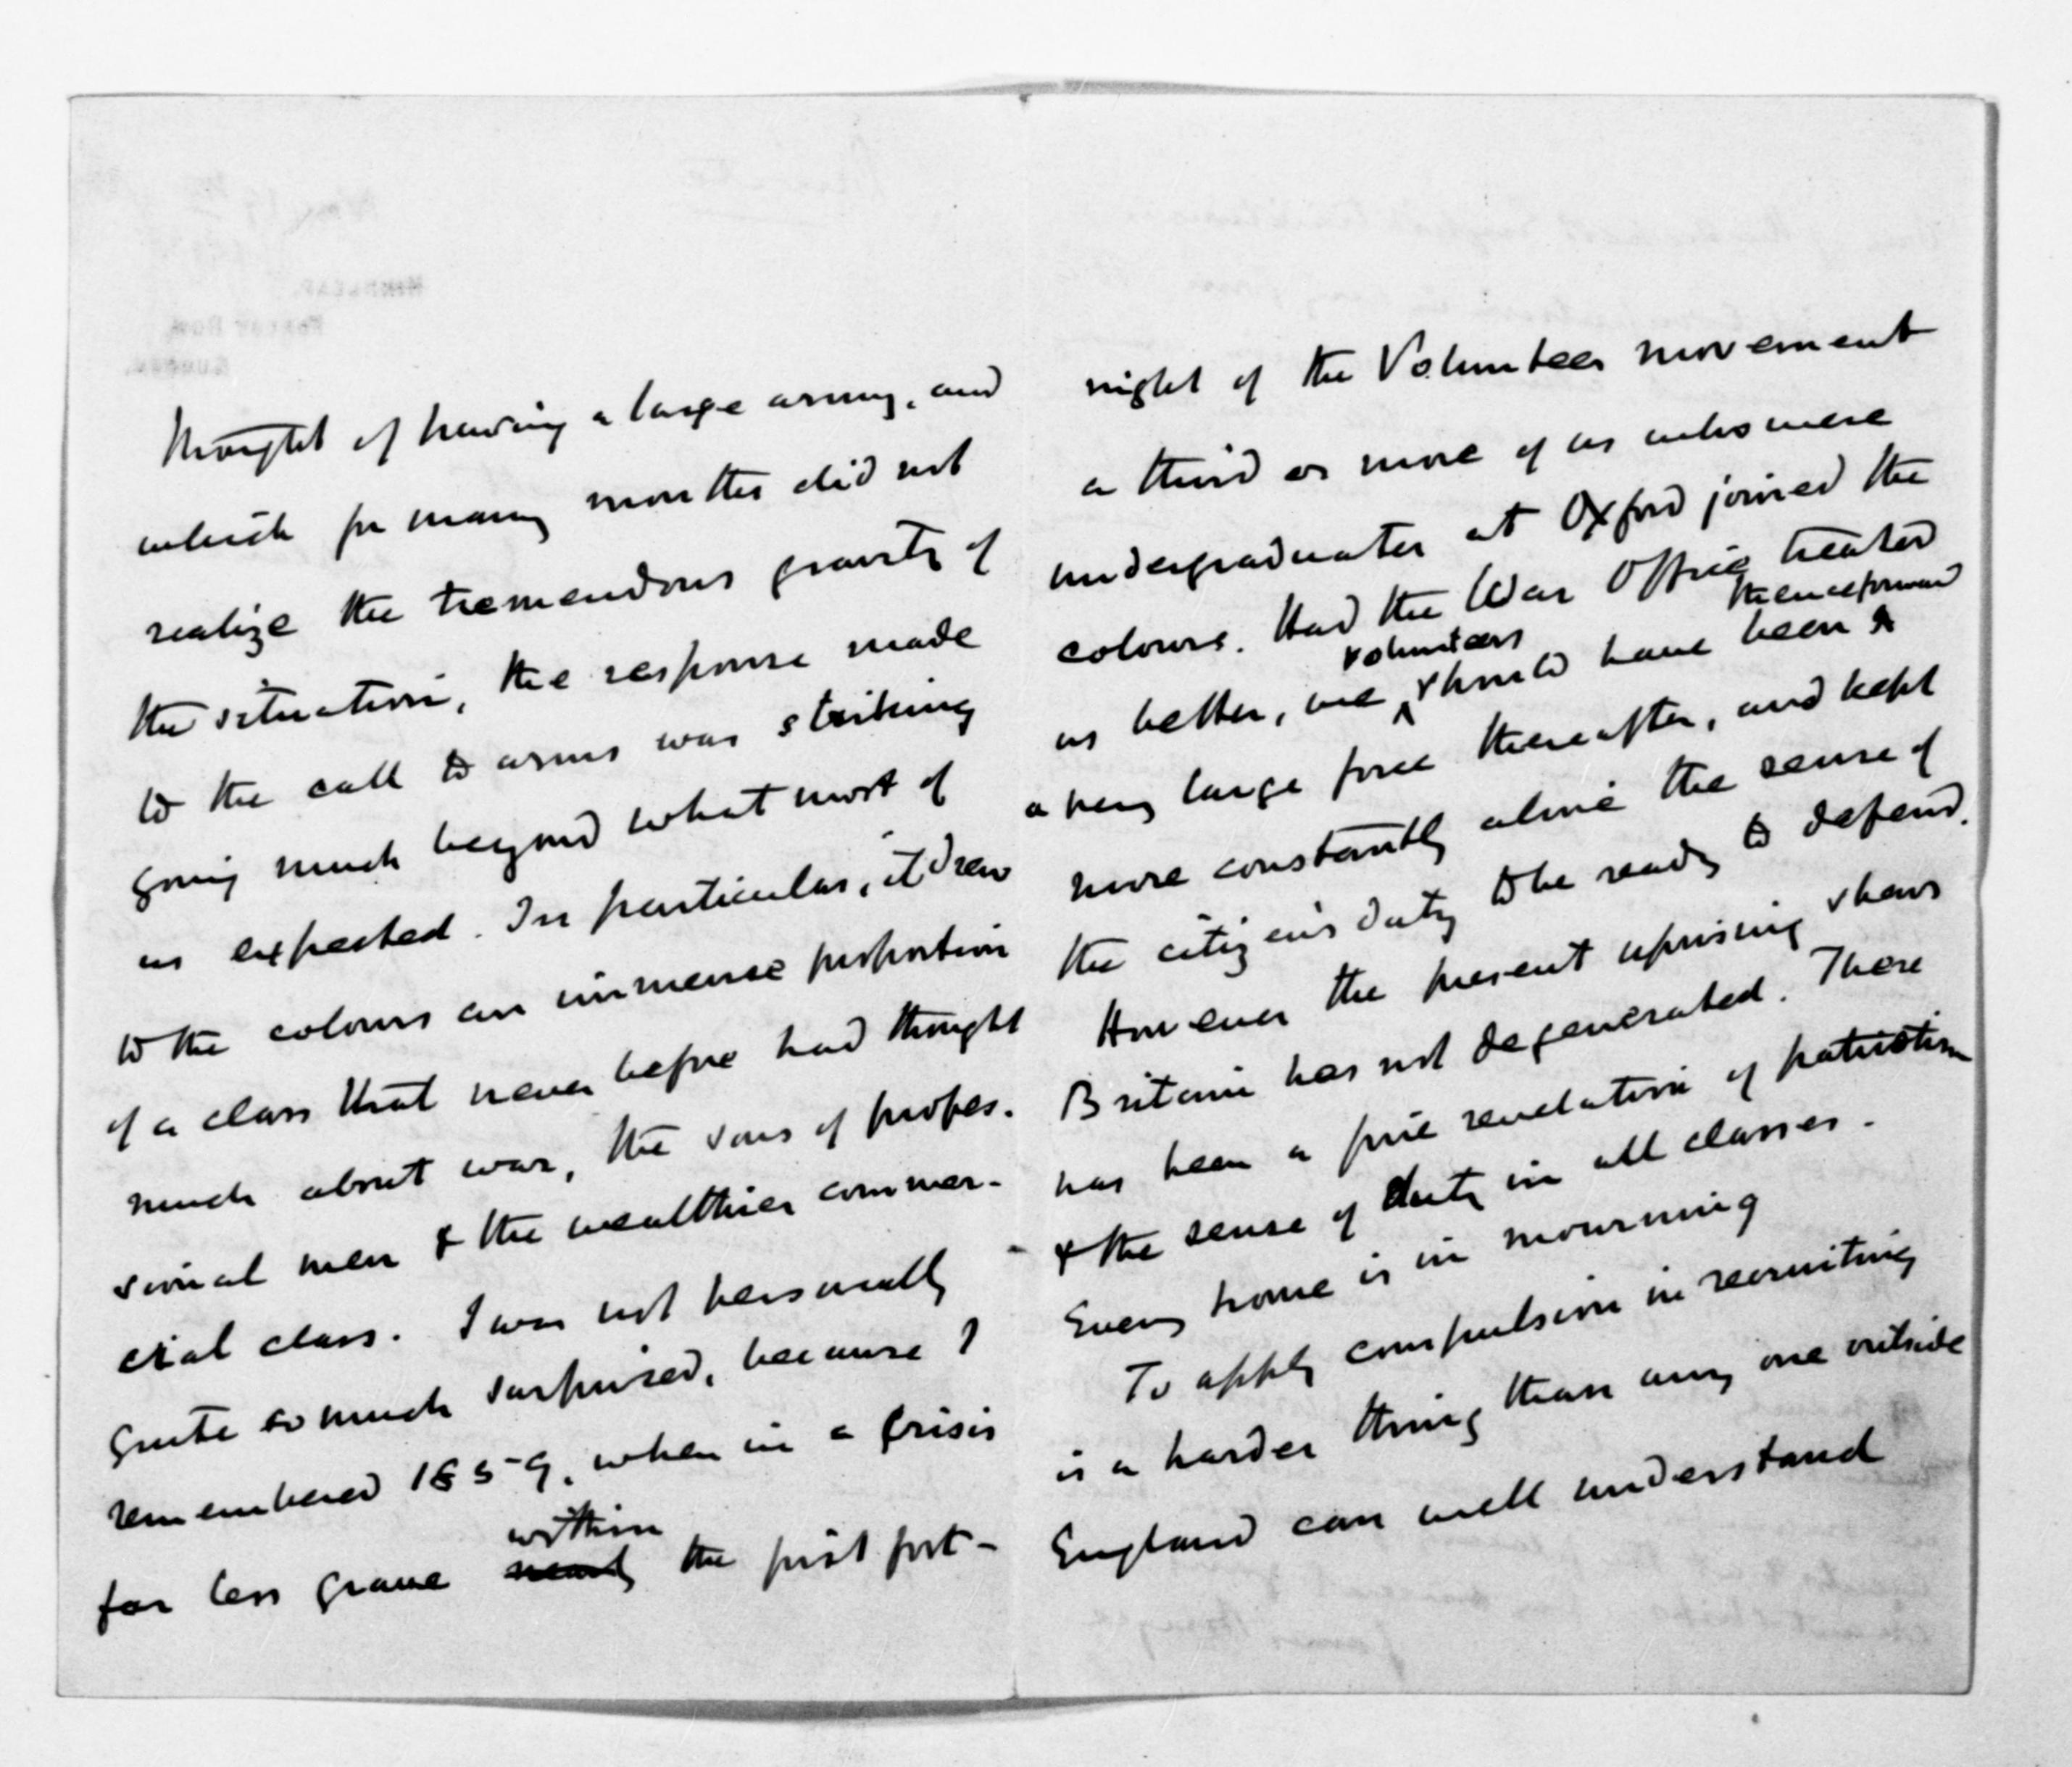 thought of having a large army, and
which for many months did not
realize the tremendous gravity of
the situation, the response made
to the call to arms was striking
going much beyond what most of
us expected. In particular, it drew
to the colours an immense proportion
of a class that never before had thought
much about war, the sons of profes-
sional men & the wealthier commer-
cial class. I was not personally
quite so much surprised, because I
remembered 1859, when in a crisis
within
far less grave nearly the first fort-
night of the Volunteer movement
a third or more of us who were
undergraduates at Oxford joined the
colours. Had the War Office treated
volunteers thenceforward
us better, we should have been
a very large force thereafter, and kept
more constantly alive the sense of
the citizen's duty to be ready to defend.
However the present uprising shews
Britain has not degenerated. There
has been a fine revelation of patriotism
& the sense of duty in all classes.
Every home is in mourning
To apply compulsion in recruiting
is a harder thing than any one outside
England can well understand